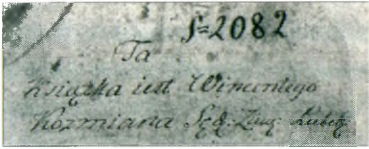 S=2082
Ta
Książka iest Wincentego
Kozmiana Sęd: Lubel: